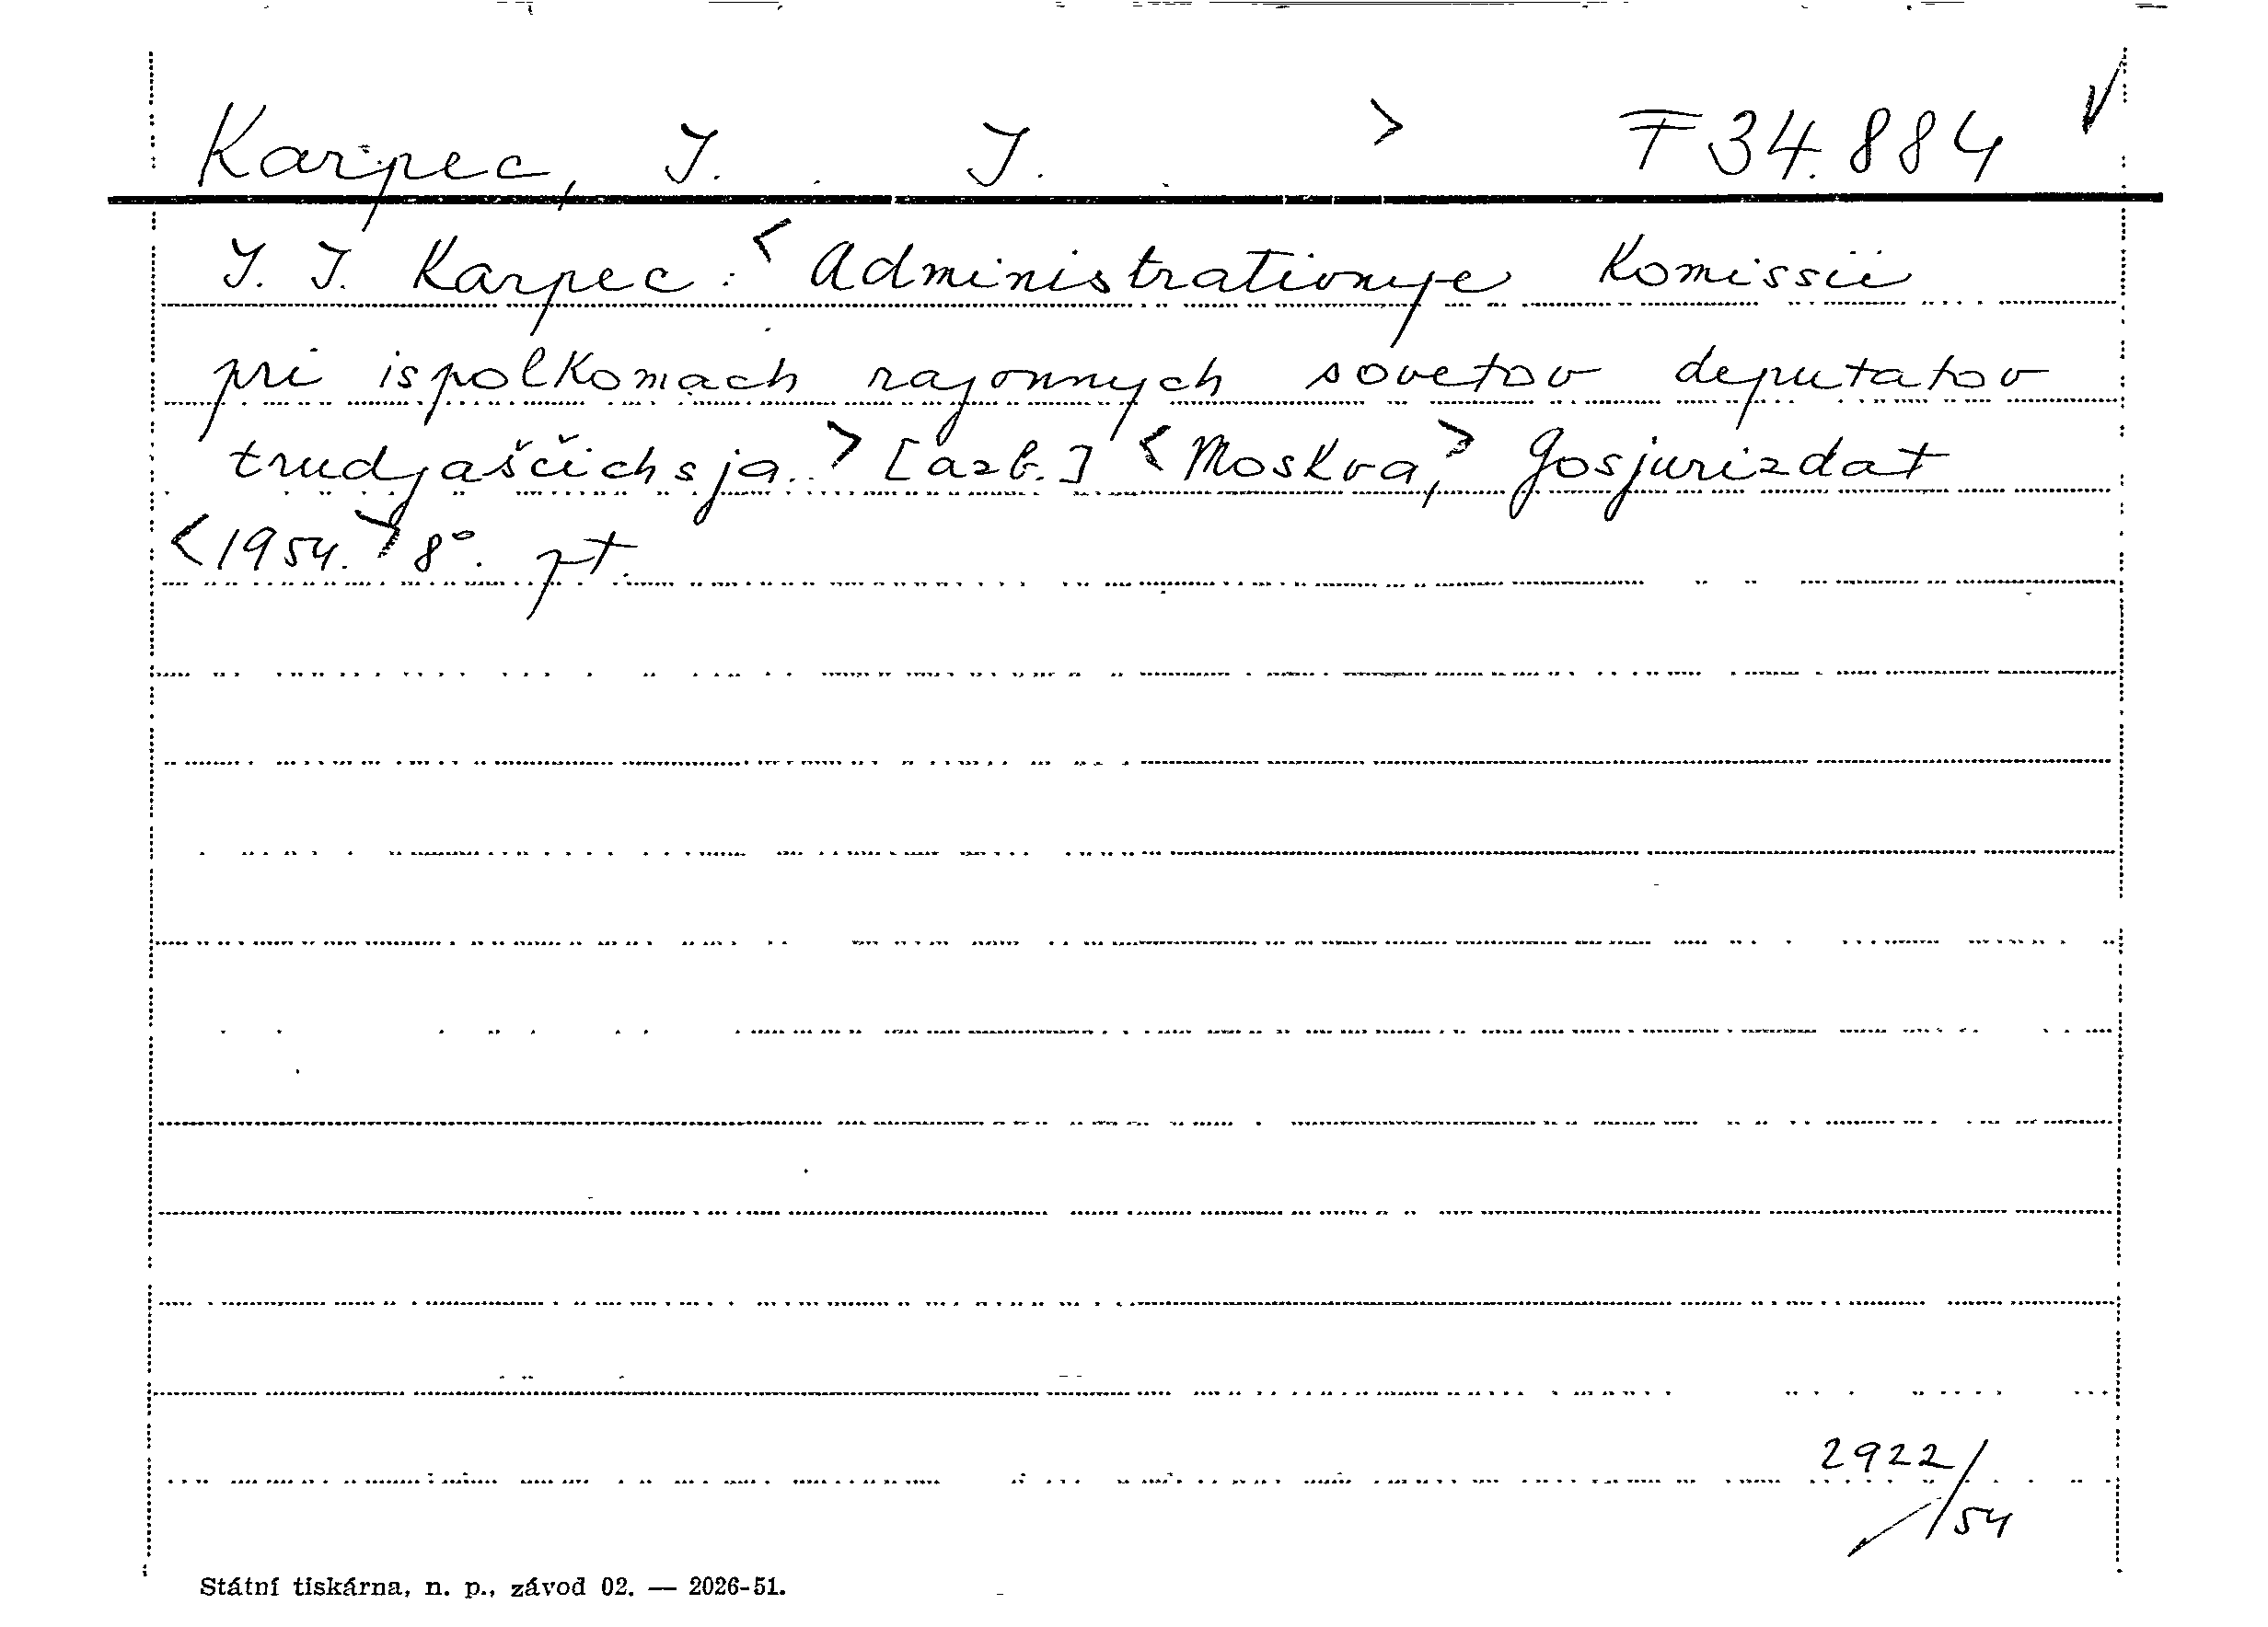 Karpec, I. I. > F 34.884
I. I. Karpec: < Administrativnyje Komissii
pri ispolkomach rajonnych sovetov deputatov
trudjaščichsja. > [azb.] < Moskva, > Gosjurizdat
< 1954. > 8°. pt.
2922/54
Státní tiskárna, n. p., závod 02. — 2026-51.